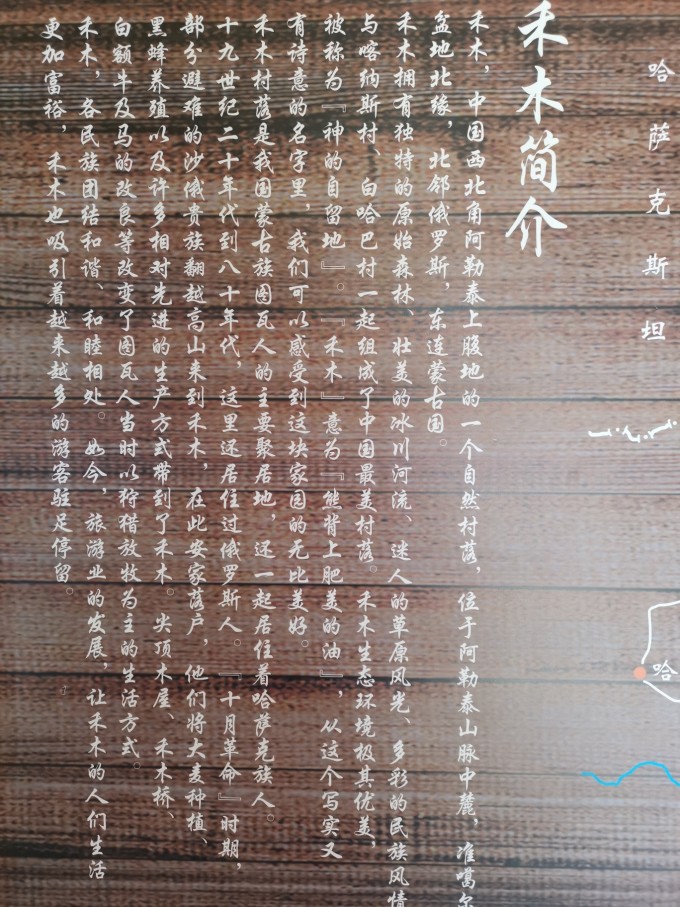 哈萨克斯坦
哈
禾木简介
禾木，中国西北角阿勒泰上腹地的一个自然村落，位于阿勒泰山脉中麓，准噶尔
盆地北缘，北邻俄罗斯，东连蒙古国。
禾木拥有独特的原始森林、壮美的冰川河流、迷人的草原风光、多彩的民族风情
与喀纳斯村、白哈巴村一起组成了中国最美村落。禾木生态环境极其优美，
被称为『神的自留地』。『禾木』意为『熊背上肥美的油』，从这个写实又
有诗意的名字里，我们可以感受到这块家园的无比美好。
禾木村落是我国蒙古族图瓦人的主要聚居地，还一起居住着哈萨克族人。
十九世纪二十年代到八十年代，这里还居住过俄罗斯人。『十月革命』时期，
部分避难的沙俄贵族翻越高山来到禾木，在此安家落户，他们将大麦种植、
黑蜂养殖以及许多相对先进的生产方式带到了禾木。尖顶木屋、禾木桥、
白额牛及马的改良等改变了图瓦人当时以狩猎放牧为主的生活方式。
禾木，各民族团结和谐、和睦相处。如今，旅游业的发展，让禾木的人们生活
更加富裕，禾木也吸引着越来越多的游客驻足停留。